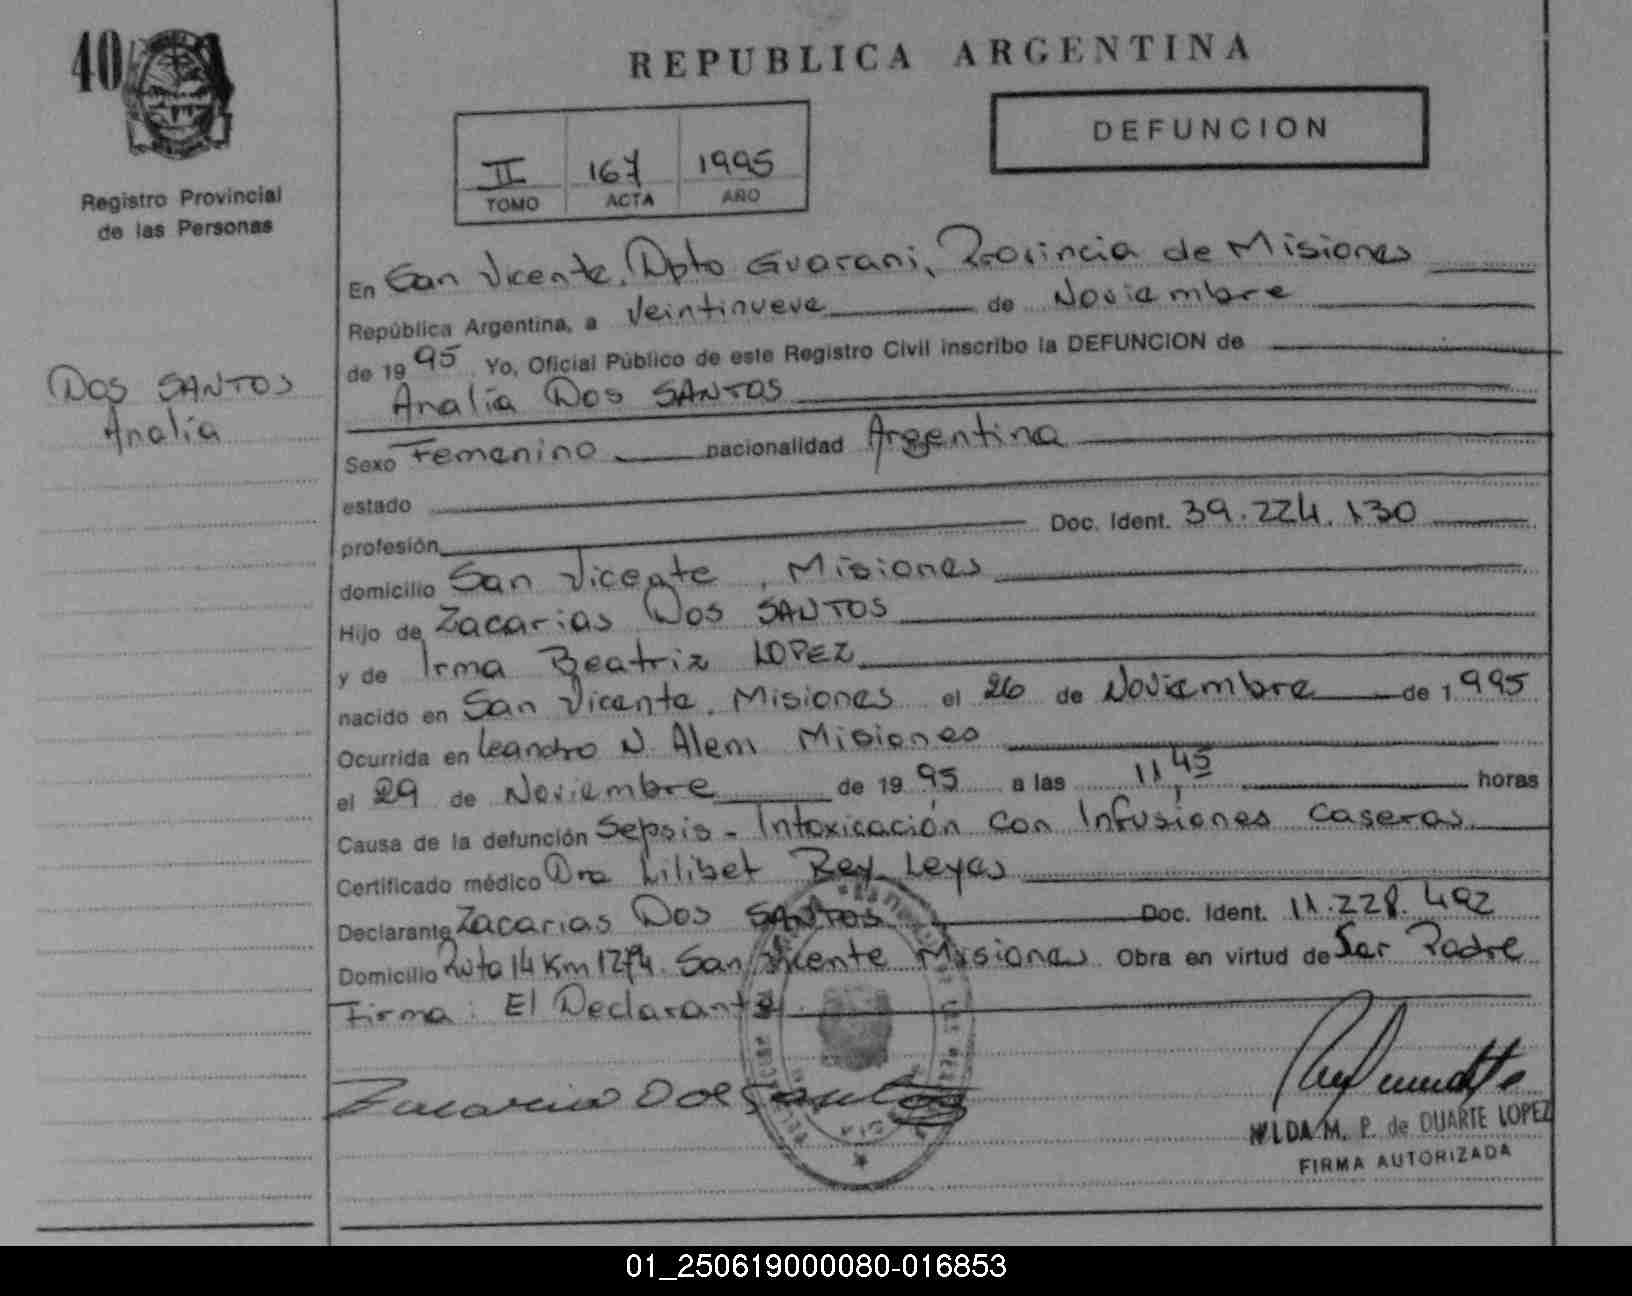 40
REPUBLICA ARGENTINA
DEFUNCION
II 167 1995
TOMO ACTA AÑO
Registro Provincial
de las Personas
En San Vicente, Dpto Guarani, Provincia de Misiones
República Argentina, a Veintinueve de Noviembre
de 1995 Yo, Oficial Público de este Registro Civil inscribo la DEFUNCION de
DOS SANTOS
Analía
Analía Dos SANTOS
Sexo Femenino nacionalidad Argentina
estado
profesión Doc. Ident. 39.224.130
domicilio San Vicente, Misiones
Hijo de Zacarias Dos SANTOS
y de Irma Beatriz LOPEZ
nacido en San Vicente, Misiones el 26 de Noviembre de 1.995
Ocurrida en Leandro N. Alem Misiones
el 29 de Noviembre de 1995 a las 11,45 horas
Causa de la defunción Sepsis - Intoxicación con Infusiones Caseras
Certificado médico Dra Lilibet Rey Leyes
Declarante Zacarias Dos SANTOS Doc. Ident. 11.228.492
Domicilio Ruta 14 Km 1274 San Vicente Misiones Obra en virtud de Ser Padre
Firma: El Declarante.
Zacarias Dos Santos
HILDA M. P. de DUARTE LOPEZ
FIRMA AUTORIZADA
01_250619000080-016853